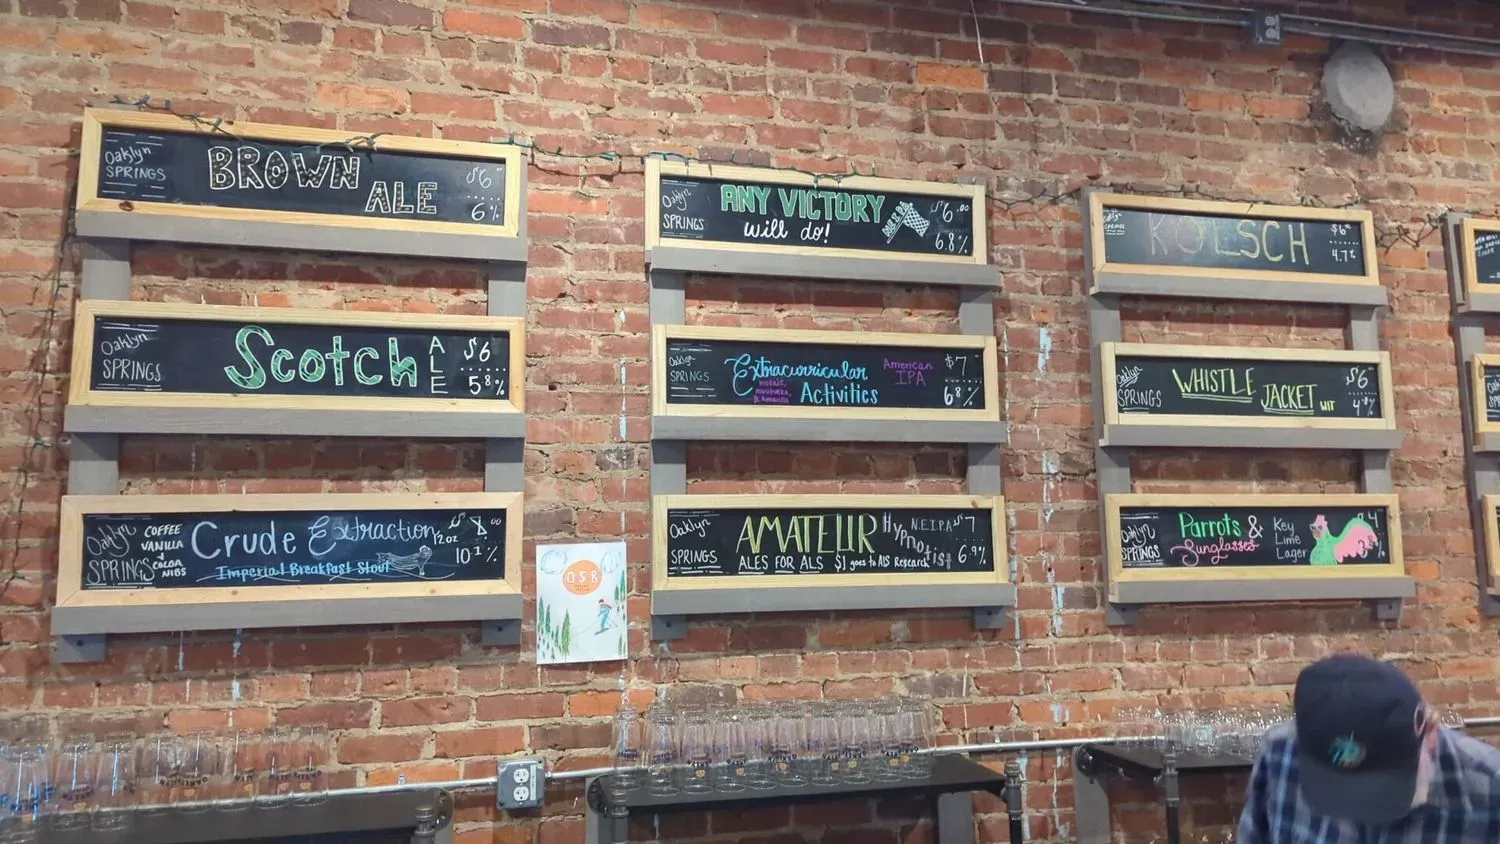 Oaklyn
SPRINGS
BROWN
ALE
$6
6%
Oaklyn
SPRINGS
Scotch
ALE
$6
5.8%
Oaklyn
SPRINGS
COFFEE
VANILLA
+
COCOA
NIBS
Crude Extraction
Imperial Breakfast Stout
12oz
$8.00
10.1%
058
Oaklyn
SPRINGS
ANY VICTORY
will do!
$6.00
6.8%
Oaklyn
SPRINGS
Extracurricular
Activities
mosaic,
& Amarillo
American
IPA
$7
6.8%
Oaklyn
SPRINGS
AMATEUR
Hypnotist
ALES FOR ALS $1 goes to ALS Research
N.E.IPA
$7
6.9%
Oaklyn
SPRINGS
KOLSCH
$6
4.7%
Oaklyn
SPRINGS
WHISTLE
JACKET WIT
$6
4.8%
Oaklyn
SPRINGS
Parrots &
Sunglasses
Key
Lime
Lager